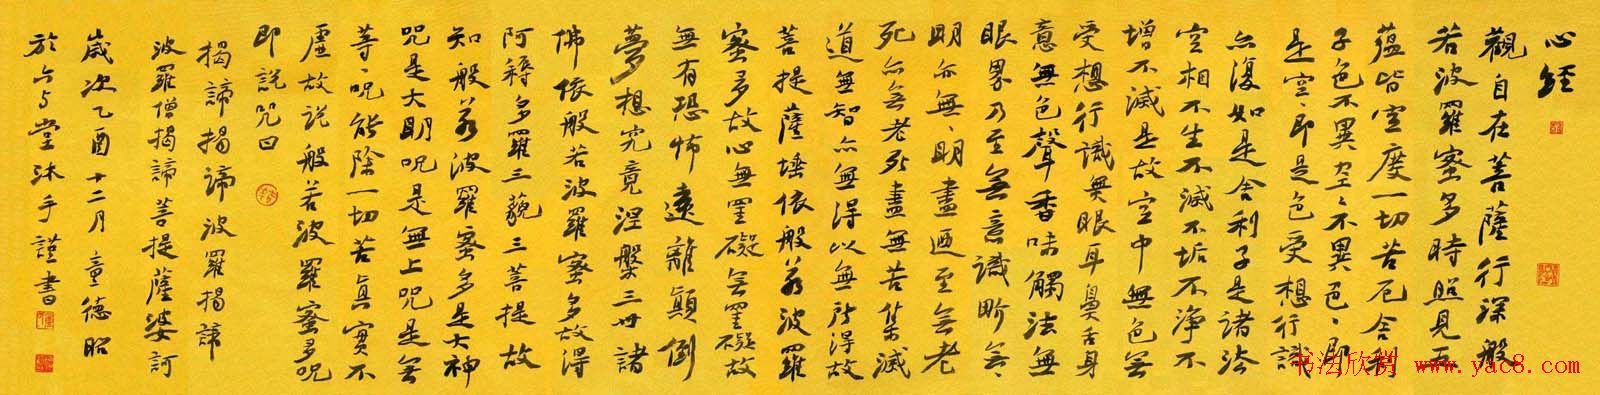 心經
觀自在菩薩行深般
若波羅蜜多時照見五
蘊皆空度一切苦厄舍利
子色不異空、不異色、即
是空、即是色受想行識
亦復如是舍利子是諸法
空相不生不滅不垢不淨不
增不減是故空中無色無
受想行識無眼耳鼻舌身
意無色聲香味觸法無
眼界乃至無意識界無、
明亦無、明盡廼至無老
死亦無老死盡無苦集滅
道無智亦無得以無所得故
菩提薩埵依般若波羅
蜜多故心無罣礙無罣礙故
無有恐怖遠離顛倒
夢想究竟涅槃三世諸
佛依般若波羅蜜多故得
阿耨多羅三藐三菩提故
知般若波羅蜜多是大神
咒是大明咒是無上咒是無
等、咒能除一切苦真實不
虛故説般若波羅蜜多咒
即説咒曰
揭諦揭諦波羅揭諦
波羅僧揭諦菩提薩婆訶
歲次乙酉十二月童德昭
於六与堂沐手謹書
书法欣赏 www.yac8.com